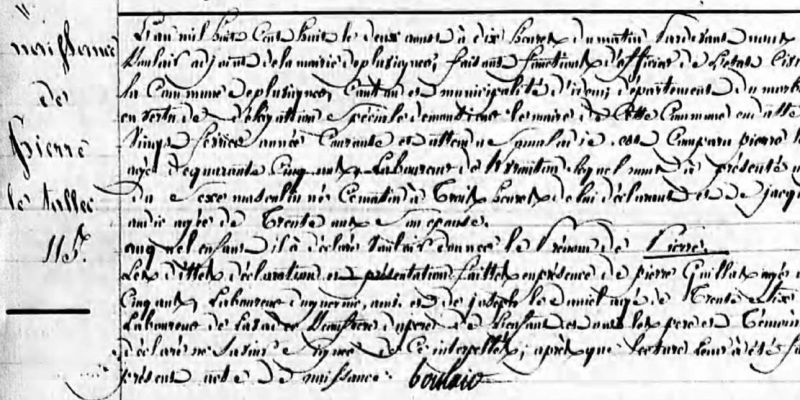 naissance
de
Pierre
le tallec
115.
L'an mil huit cent huit le deux aout à dix heures du matin Pardevant nous
adjoint de la mairie de plusiques, faisant fonctions d'officier de L'etat Civ
la Commune de plusiques, Canton et municipalité d'idem departement du morb
en vertu de délégation Spéciale de le maire de Cette Commune en
année Courante et Comparu pierre le
agé de quarante Cinq ans, Laboureur de lequel nous à présenté
du Sexe masculin né Cematin à trois heures de lui déclarant et de jacq
agée de trente ans Son epouse.
auquel enfant il à déclaré Vouloir donner le Prénom de Pierre
Les dittes déclaration et présentation faittes en présence de pierre Guillax agé
Cinq ans, Laboureur et de joseph le agé de trente
Laboureur de du pere de L'enfant et ont les pere et Témoin
déclaré ne Savoir Signer de Ce interpellés, après que lecture leur à été fa
présent acte de naissance. boulaio